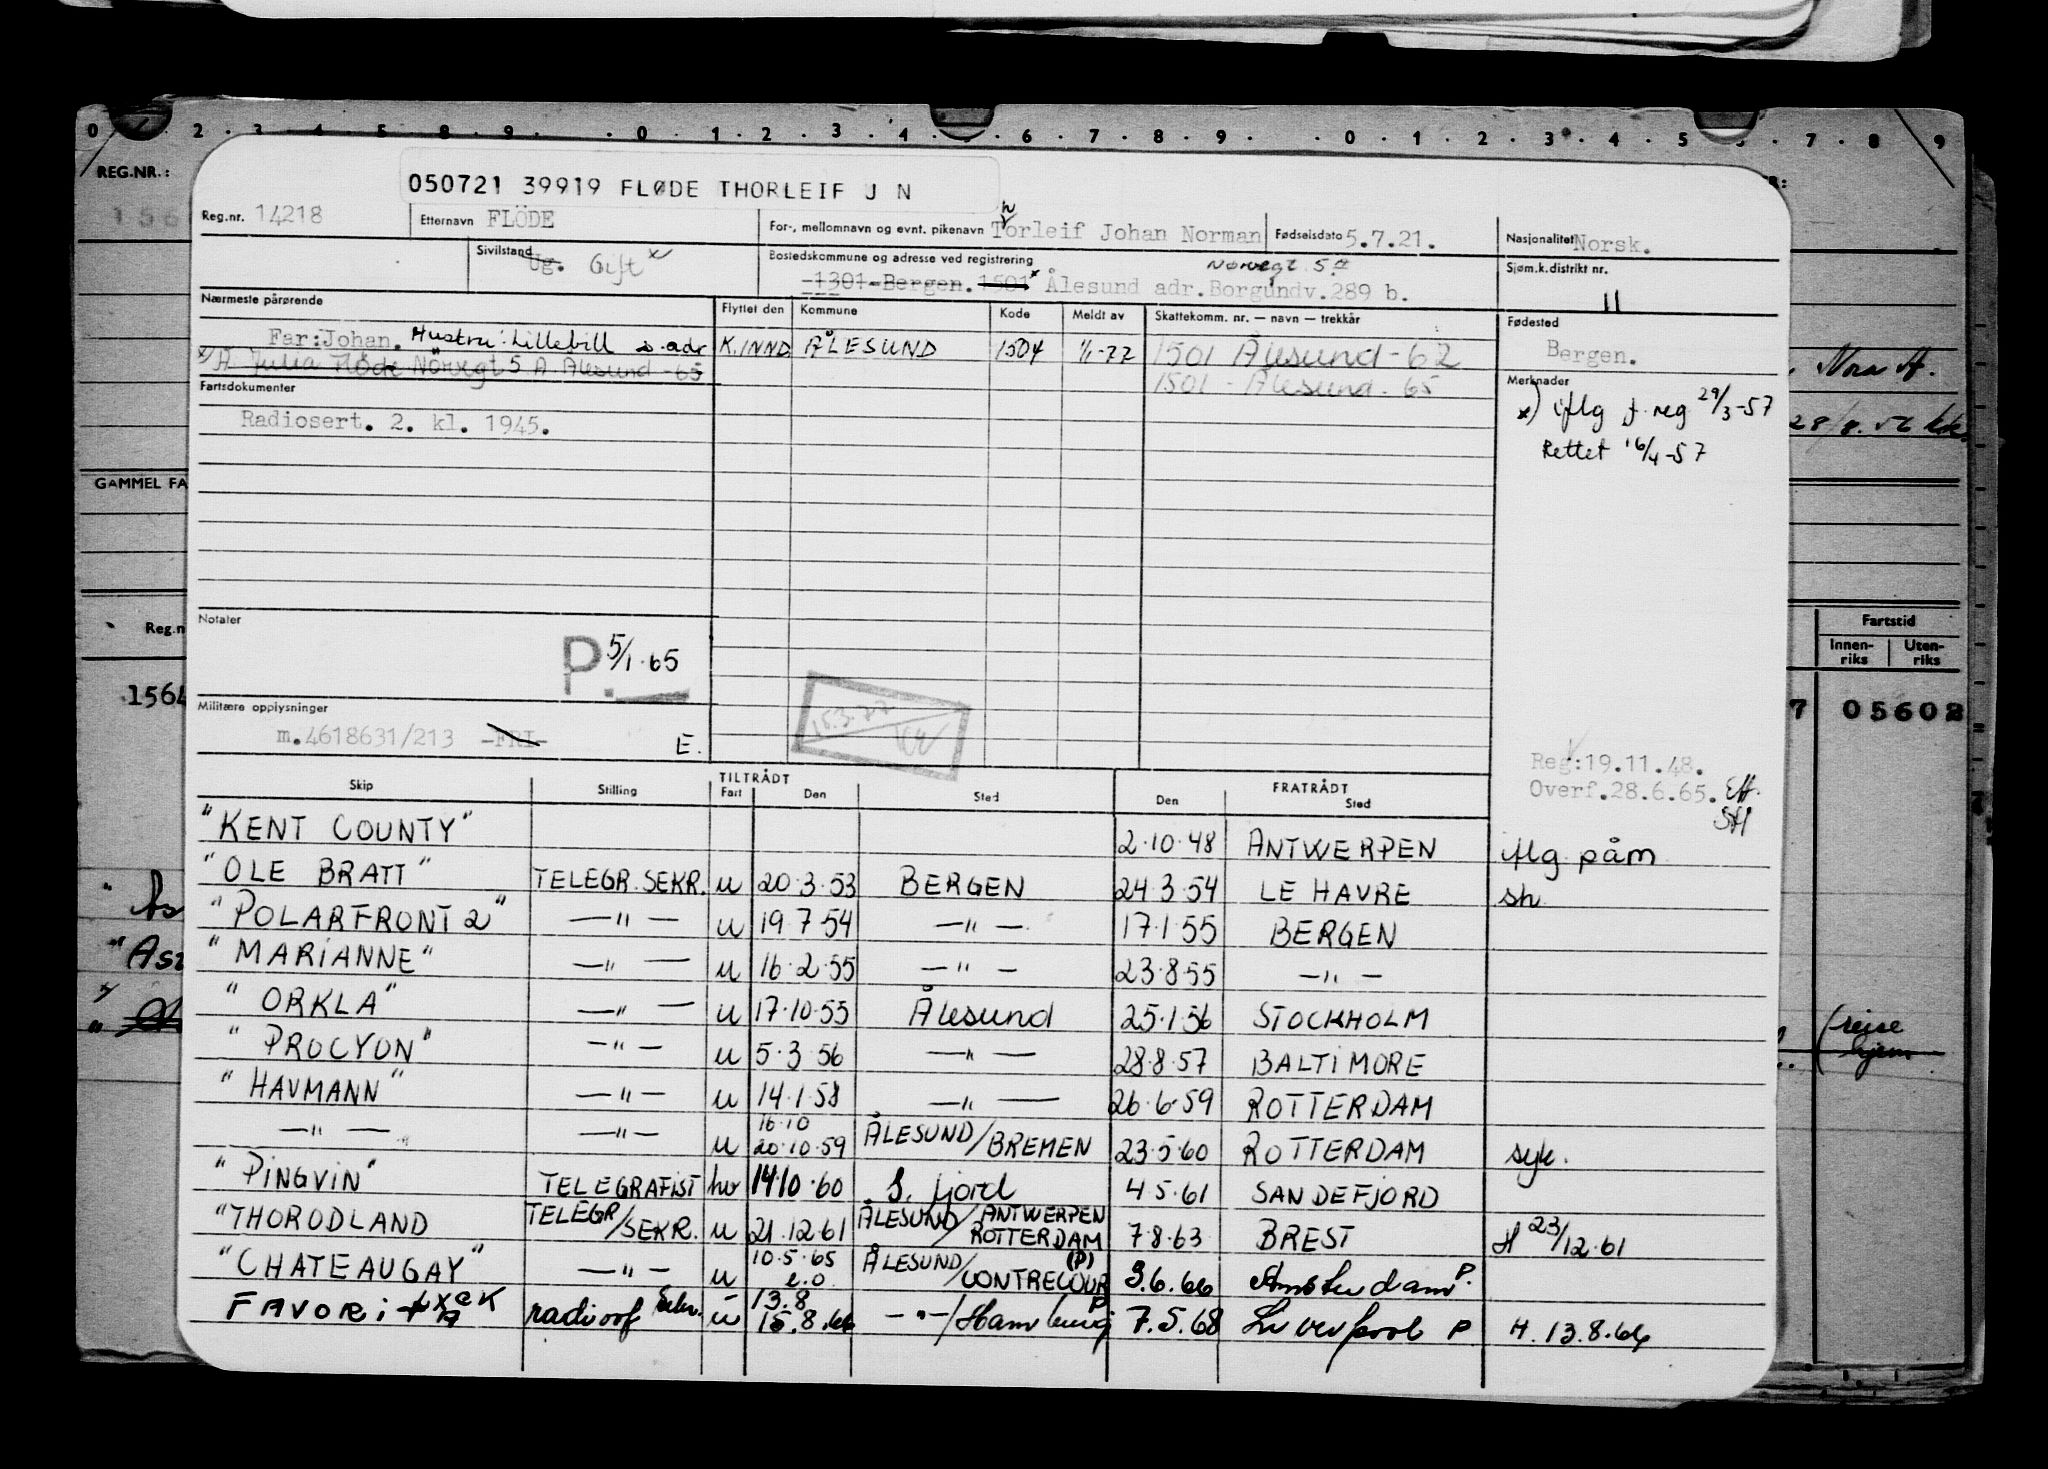 0 2 3 4 5 8 9 0 1 2 3 4 6 7 8 9 0 1 2 3 4 5 6 7 8 9
REG.NR.:
050721 39919 FLØDE THORLEIF J N
Reg.nr. 14218 Etternavn FLÖDE For-, mellomnavn og evnt. pikenavn Torleif Johan Norman Fødselsdato 5.7.21. Nasjonalitet Norsk.
h
Sivilstand Ug. Gift x Bostedskommune og adresse ved registrering Nørvegt 5 A Sjøm.k.distrikt nr.
-1301-Bergen. 1501 x Ålesund adr. Borgundv. 289 b. 11
Nærmeste pårørende Flyttet den Kommune Kode Meldt av Skattekomm. nr. — navn — trekkår Fødested
Far: Johan. Hustru: Lillebill s. adr K.INND ÅLESUND 1504 1/1-77 1501 Ålesund - 62 Bergen.
x/ Julia Flöde Nörvegt 5 A Ålesund -65 1501 - Ålesund - 65
Fartsdokumenter Merknader
Radiosert. 2. kl. 1945. x) iflg f. reg 29/3-57
Rettet 16/4-57
Nora A.
28/8. 56
GAMMEL FA
Notater
P. 5/1.65
Fartstid
Innen-riks Uten-riks
Reg.n
1564
7 05602
Militære opplysninger
m.4618631/213 -FRI- E.
15.3.77
Reg:19.11.48.
Overf.28.6.65.
Skip Stilling TILTRÅDT Fart Den Sted FRATRÅDT Den Sted
"KENT COUNTY" 2.10.48 ANTWERPEN iflg påm
"OLE BRATT" TELEGR.SEKR. u 20.3.53 BERGEN 24.3.54 LE HAVRE sh
"POLARFRONT 2" —"— u 19.7.54 —"— 17.1.55 BERGEN
"MARIANNE" —"— u 16.2.55 —"— 23.8.55 —"—
"ORKLA" —"— u 17.10.55 Ålesund 25.1.56 STOCKHOLM
"PROCYON" —"— u 5.3.56 —"— 28.8.57 BALTIMORE
"HAVMANN" —"— u 14.1.58 —"— 26.6.59 ROTTERDAM
—"— —"— u 16.10 20.10.59 ÅLESUND/BREMEN 23.5.60 ROTTERDAM syk.
"PINGVIN" TELEGRAFIST hv 14.10.60 S. fjord 4.5.61 SANDEFJORD
"THORODLAND TELEGR/SEKR. u 21.12.61 ÅLESUND/ANTWERPEN ROTTERDAM 7.8.63 BREST H 23/12.61
"CHATEAUGAY" —"— u 10.5.65 e.o. ÅLESUND/CONTRECOUR (P) 3.6.66 Amsterdam P.
FAVORiTA radiooff Sekr. u 13.8 15.8.66 —"—/Hamburg P 7.5.68 Liverpool P H. 13.8.66
(reise hjem